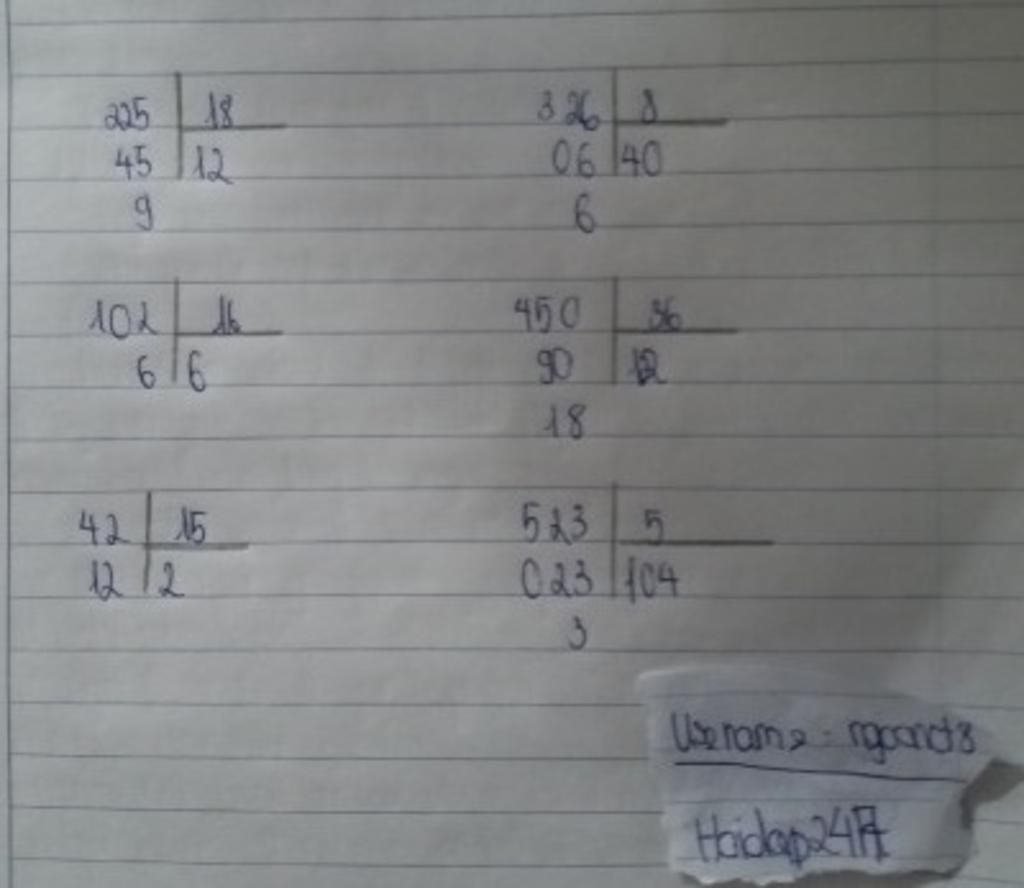 225 18 326 8
45 12 06 40
9 6
102 16 450 36
6 6 90 12
18
42 15 523 5
12 2 023 104
3
Hoidap247